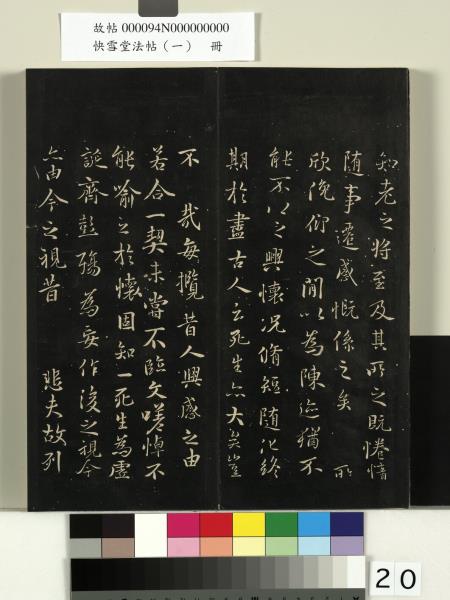 故帖 000094N000000000
快雪堂法帖（一） 冊
知老之將至及其所之既惓情
随事遷感慨係之矣 所
欣俛仰之間以為陳迹猶不
能不以之興懷况脩短随化終
期於盡古人云死生亦大矣豈
不 哉每攬昔人興感之由
若合一契未嘗不臨文嗟悼不
能喻之於懷固知一死生為虛
誕齊彭殤為妄作後之視今
亦由今之視昔 悲夫故列
20